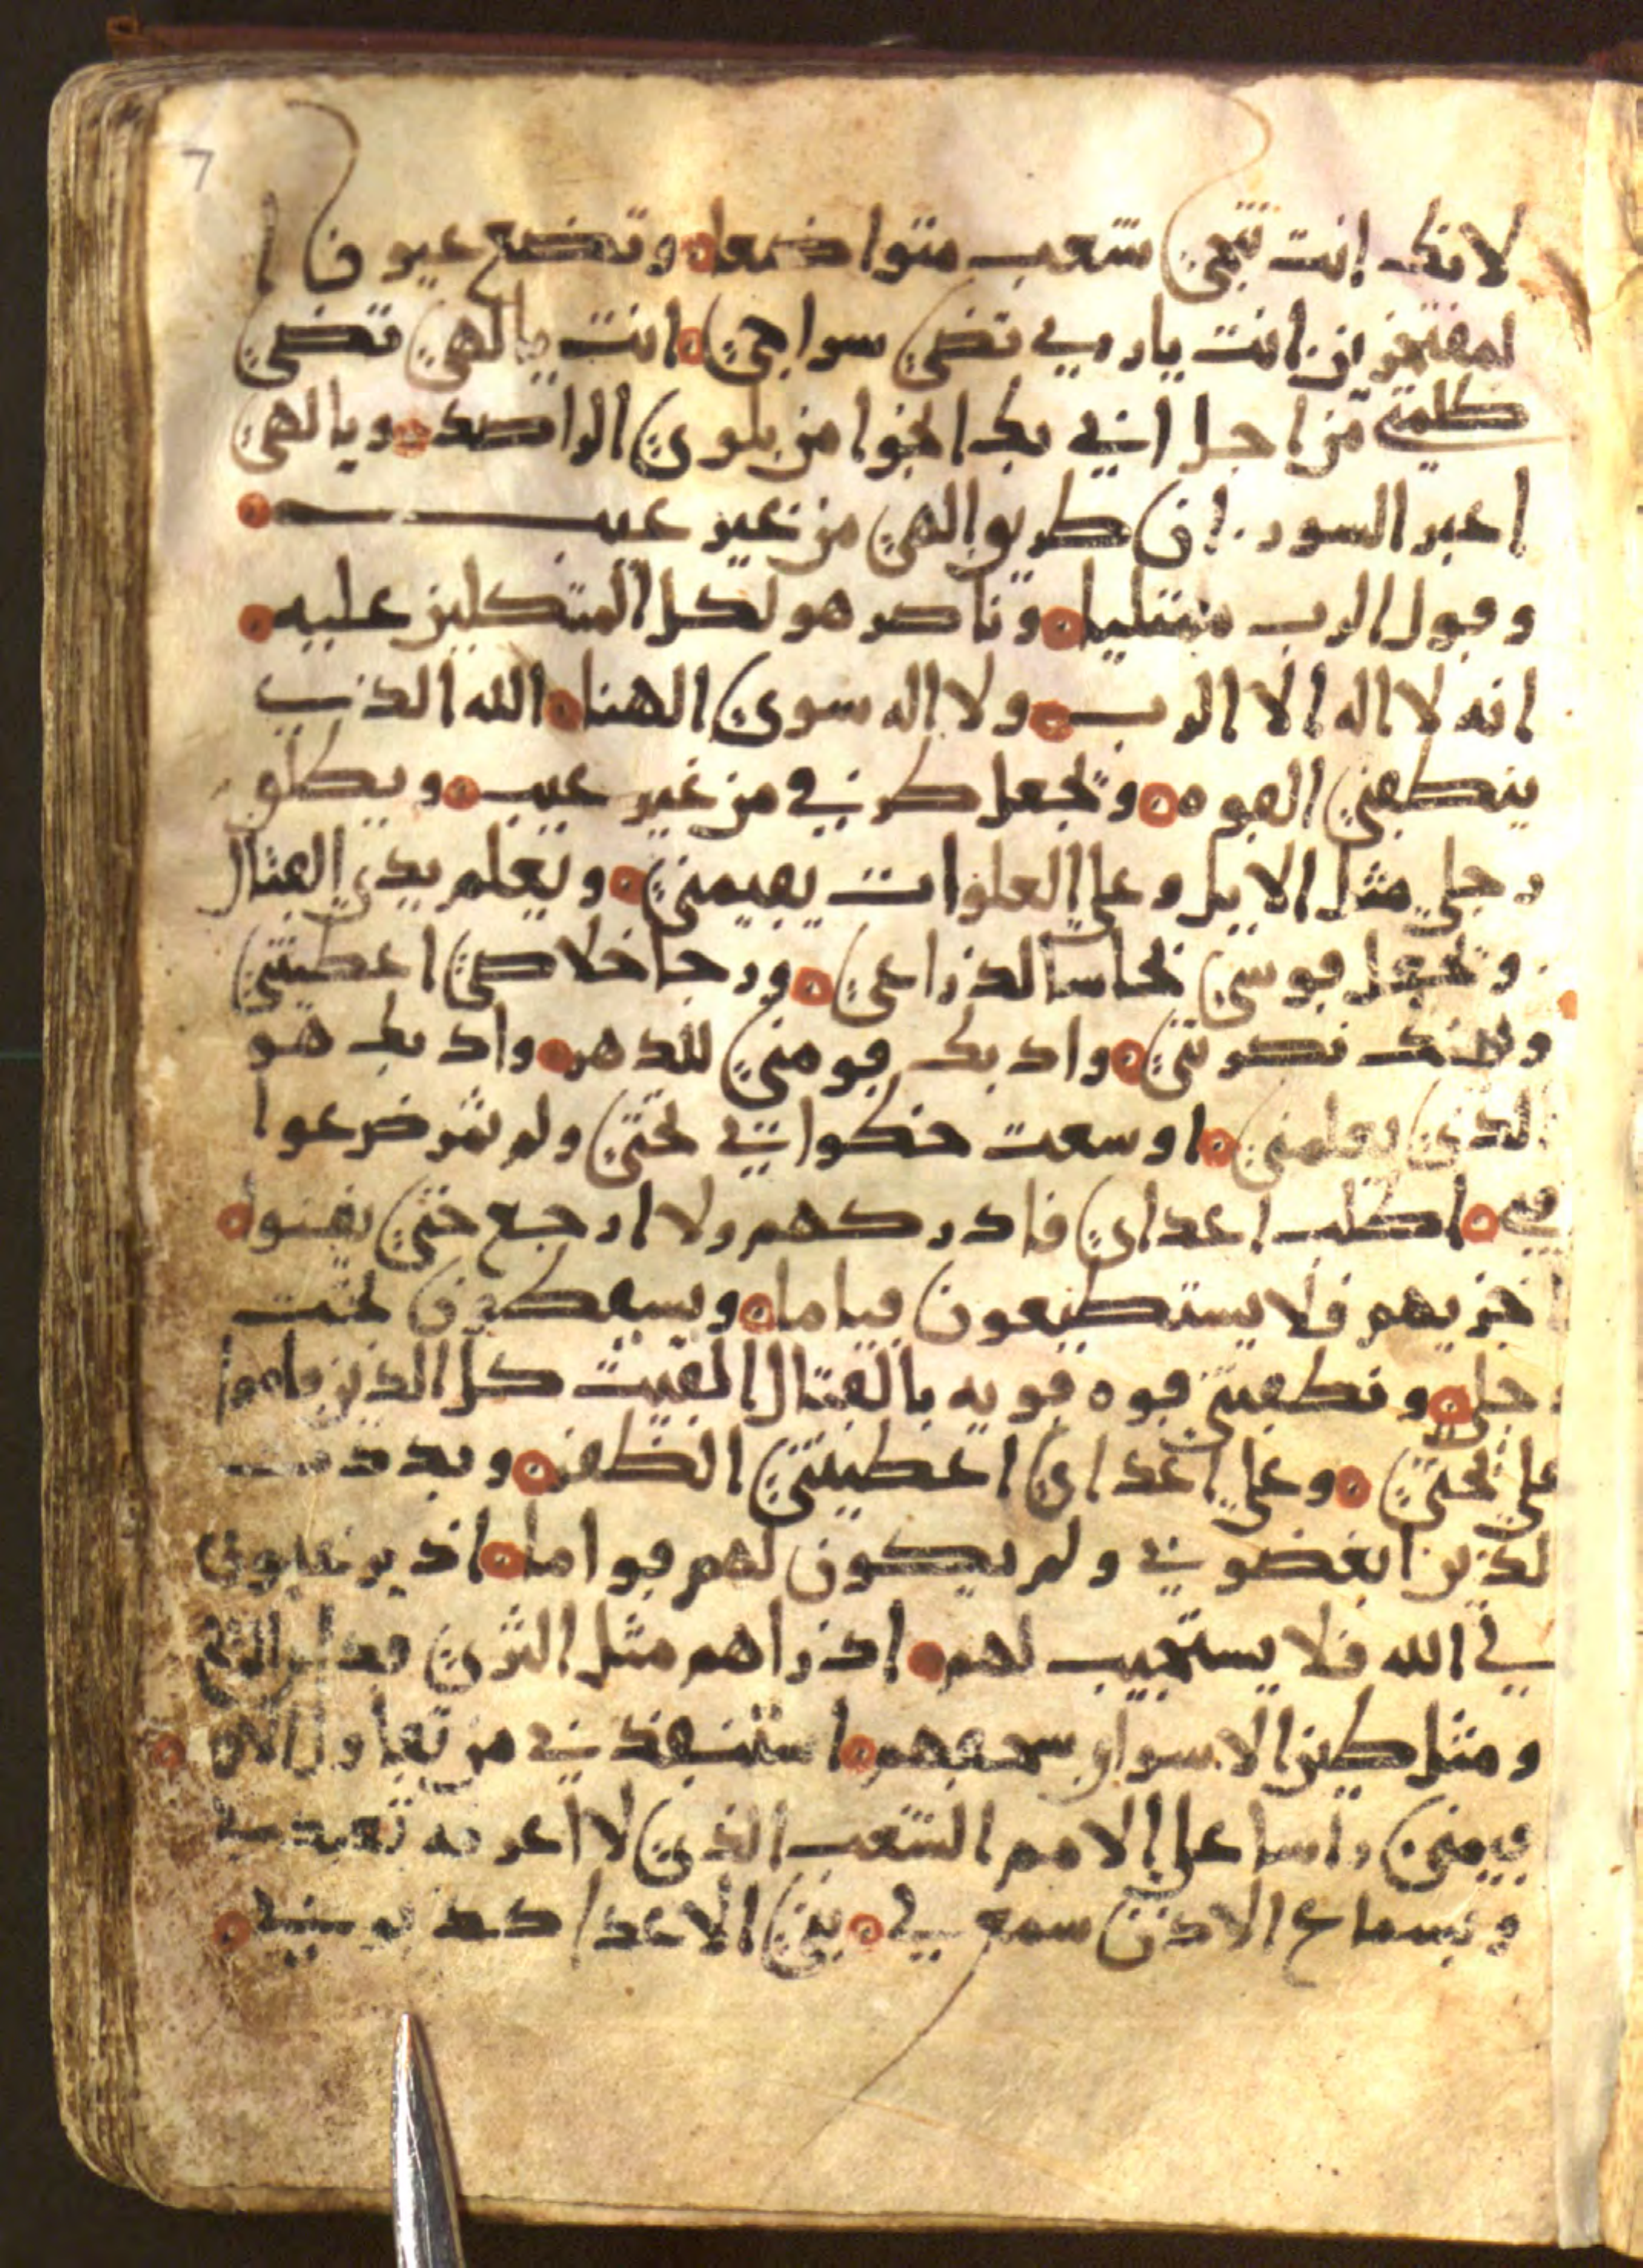 7
لانك انت تنجي شعب متواضعا وتضع عيون ا
لمفتخرين انت يا رب تضي سراجي انت يا الهي تضي
ظلمتي من اجل اني بك انجوا من بلوى الراصد وبالهي
اعبر السور ان طريق الهي من غير عيب
وقول الرب مبتليا وناصر هو لكل المتكلين عليه
انه لا اله الا الرب ولا اله سوى الهنا الله الذي
ينطقني القوه وتجعل طرقي من غير عيب ويطلق
رجلي مثل الايل وعلى العلوات يقيمني ويعلم يدي القتال
وتجعل قوسي نحاسا لذراعي ورجا خلاصي اعطيتني
ويمينك نصرتني وادبك قومني للدهر وادبك هو
الذي يعلمني اوسعت خطواتي تحتي ولم تتزعزعوا
اطلب اعداي فادركهم ولا ارجع حتى يفنوا
اخزيهم فلا يستطيعون قياما ويسقطون تحت
رجلي وتنطقني قوه قويه بالقتال القيت كل الذين قاموا
علي تحتي وعلى اعداي اعطيتني الظفر وبددت
لذين ابغضوني ولم يكون لهم قواما اذ يرغبون
في الله فلا يستجيب لهم اذراهم مثل الثرى قدام الريح
ومثل طين الاسواق اسحقهم استنقذني من تقاول الامم
يقيمني راسا على الامم الشعب الذي لا اعرفه تعبد لي
وبسماع الاذن سمع لي بني الاعدا كذبوني